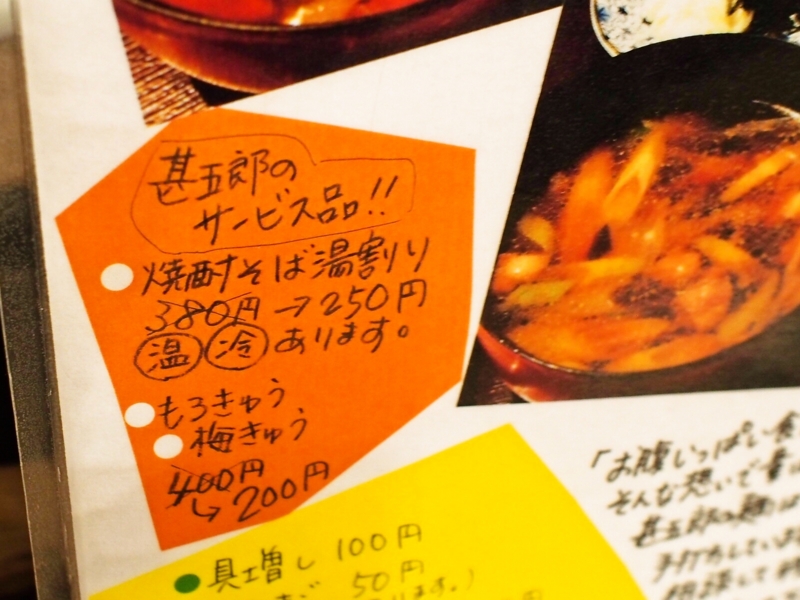 甚五郎の
サービス品!!
焼酎そば湯割り
380円→250円
温 冷 あります。
もろきゅう
梅きゅう
400円
↳200円
具増し 100円
50円
「お腹いっぱい食
そんな想いで
甚五郎の麺は